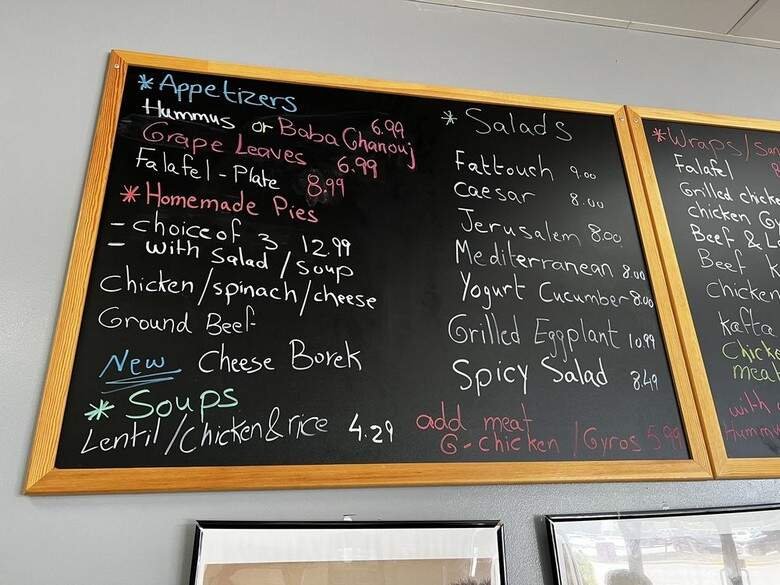 *Appetizers
Hummus or Baba Ghanouj 6.99
Grape Leaves 6.99
Falafel - Plate 8.99
*Homemade Pies
- choice of 3 12.99
- with Salad/Soup
Chicken/spinach/cheese
Ground Beef
New Cheese Borek
*Soups
Lentil/Chicken & rice 4.29
*Salads
Fattouch 9.00
Caesar 8.00
Jerusalem 8.00
Mediterranean 8.00
Yogurt Cucumber 8.00
Grilled Eggplant 10.99
Spicy Salad 8.49
add meat
G-chicken/Gyros 5.99
*Wraps/San
Falafel
Grilled chicke
chicken G
Beef & L
Beef K
Chicken
Kafta
Chicke
meat
with
Hummu